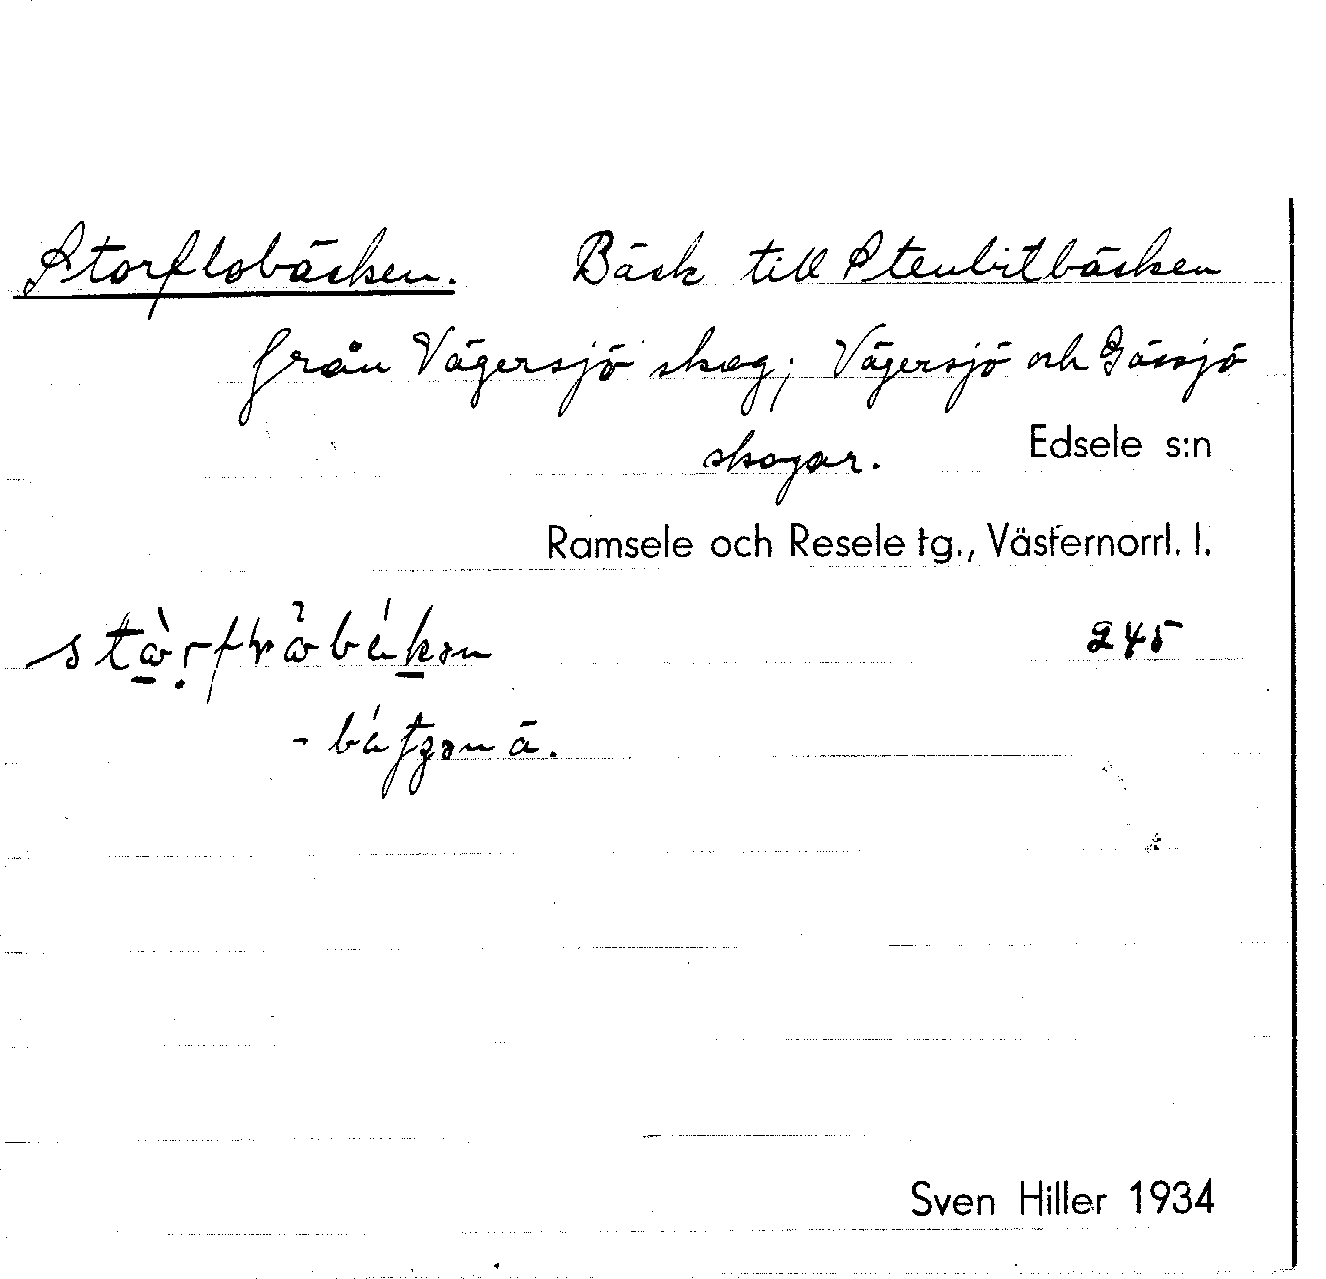 Storflobäcken. Bäck till Stenbitbäcken
från Vägersjö skog; Vägersjö och Gåssjö
skogar. Edsele s:n
Ramsele och Resele tg., Västernorrl. l.
245
Sven Hiller 1934